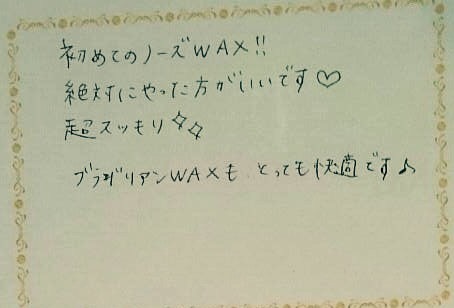 初めてのノーズWAX!!
絶対にやった方がいいです♡
超スッキリ✧✧
ブラジリアンWAXも とっても快適です♪